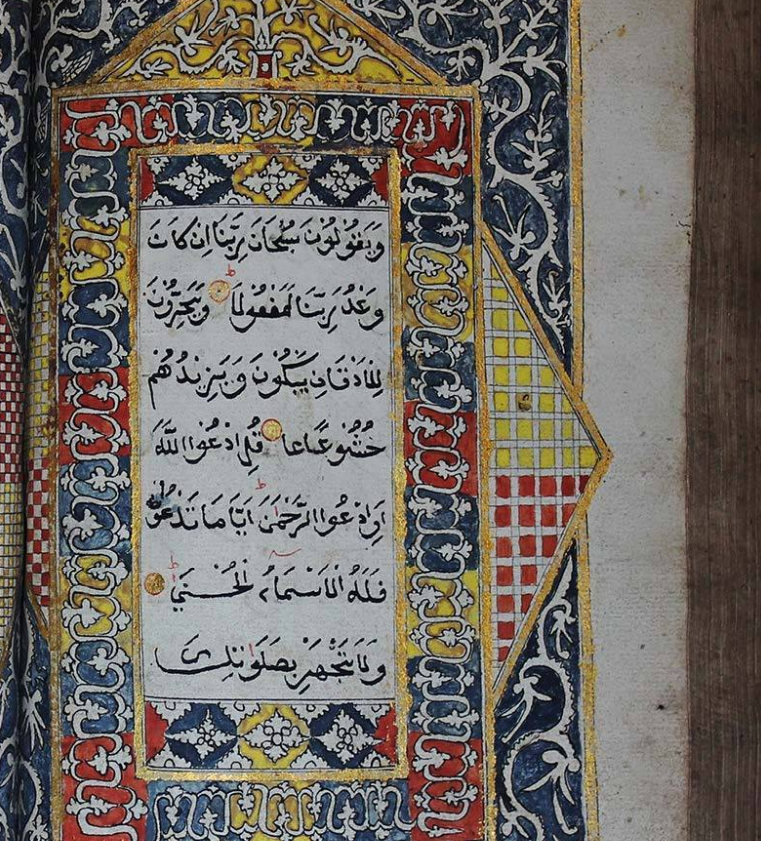 وَيَقُولُونَ سُبْحَانَ رَبِّنَا اِنْ كَانَ
وَعْدُ رَبِّنَا لَمَفْعُولًا ۝ وَيَخِرُّونَ
لِلْاَذْقَانِ يَبْكُونَ وَيَزِيْدُهُمْ
خُشُوْعًا ۝ قُلِ ادْعُوا اللّٰهَ
اَوِ ادْعُوا الرَّحْمٰنَ اَيًّا مَا تَدْعُوْا
فَلَهُ الْاَسْمَاءُ الْحُسْنٰى ۝
وَلَا تَجْهَرْ بِصَلَاتِكَ